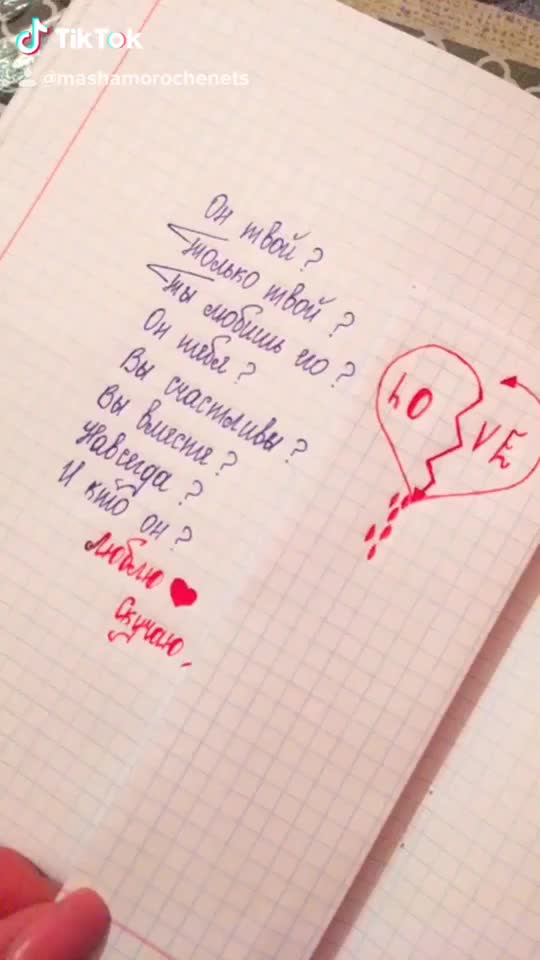 TikTok
@mashamorochenets
Он твой?
только твой?
ты любишь его?
Он тебя?
Вы счастливы?
Вы вместе?
Навсегда?
И кто он?
Люблю
Скучаю,
LO
VE